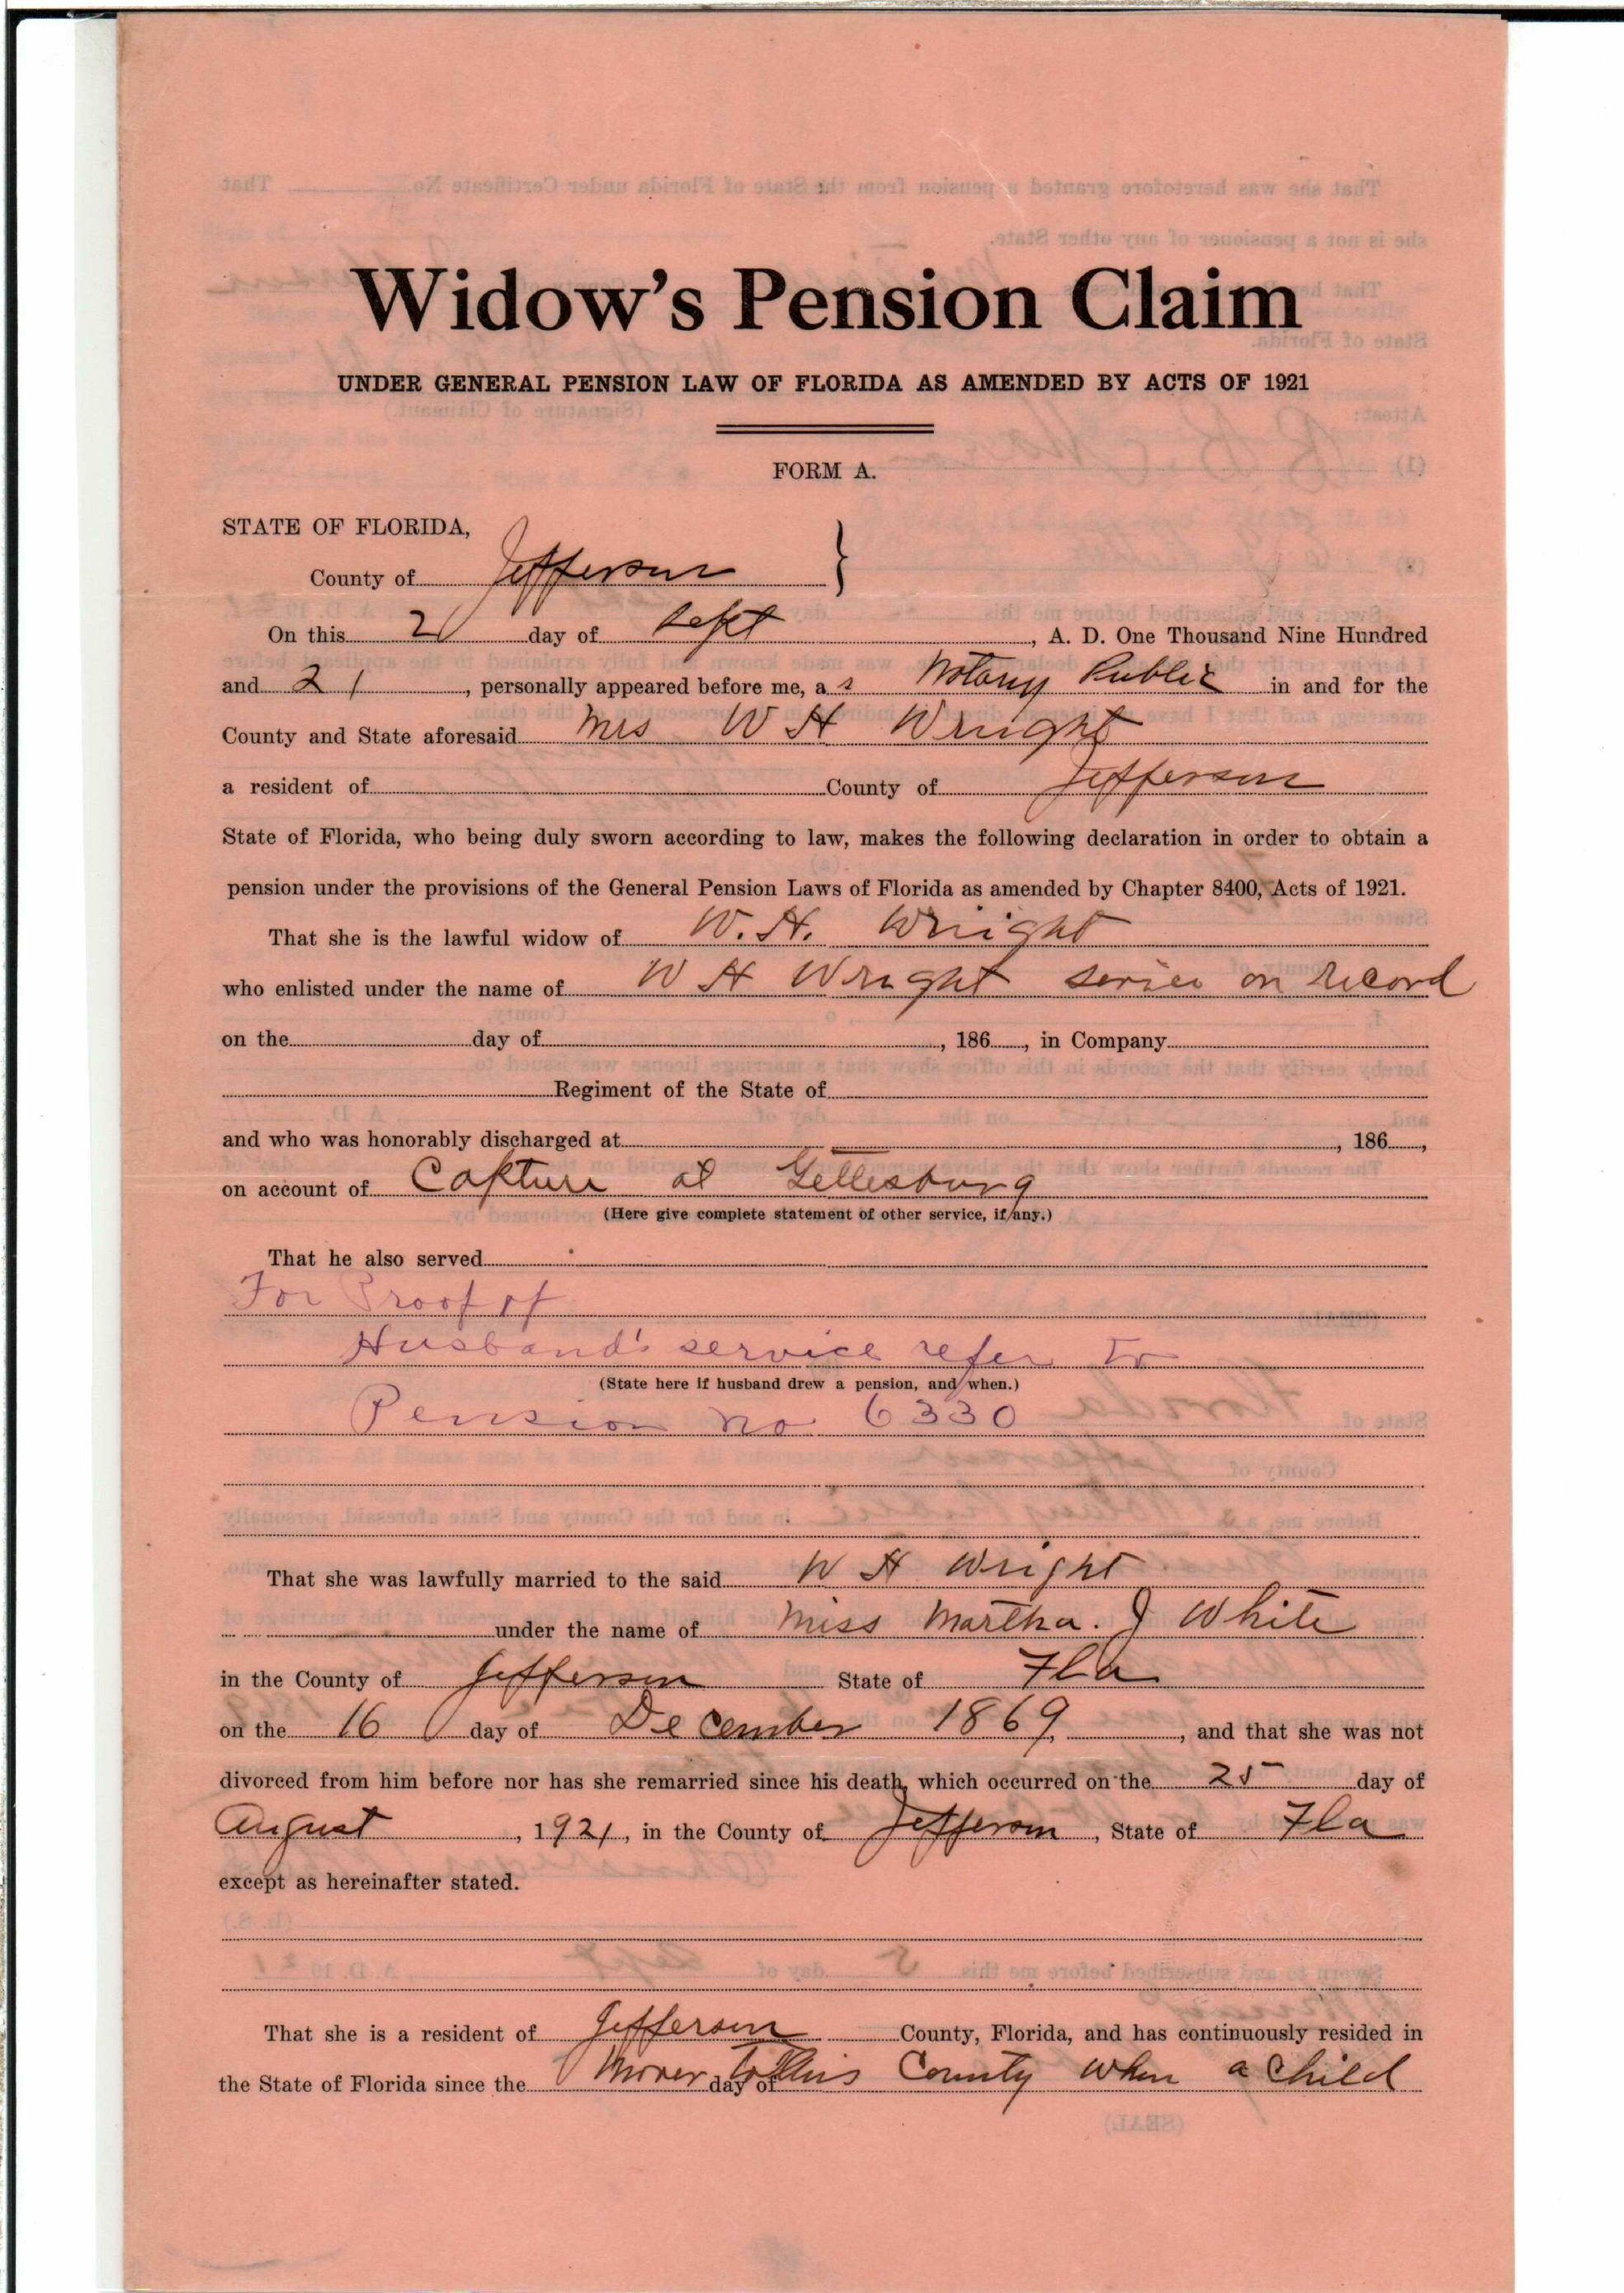 Widow's Pension Claim
UNDER GENERAL PENSION LAW OF FLORIDA AS AMENDED BY ACTS OF 1921
FORM A.
STATE OF FLORIDA,
County of Jefferson }
On this 2 day of Sept, A. D. One Thousand Nine Hundred
and 21, personally appeared before me, a Notary Public in and for the
County and State aforesaid Mrs W H Wright
a resident of County of Jefferson
State of Florida, who being duly sworn according to law, makes the following declaration in order to obtain a
pension under the provisions of the General Pension Laws of Florida as amended by Chapter 8400, Acts of 1921.
That she is the lawful widow of W. H. Wright
who enlisted under the name of W H Wright on record
on the day of , 186 , in Company
Regiment of the State of
and who was honorably discharged at , 186 ,
on account of Capture at Gettesburg
(Here give complete statement of other service, if any.)
That he also served
For Proof of
Husband's service refer to
(State here if husband drew a pension, and when.)
Pension No 6330
That she was lawfully married to the said W H Wright
under the name of Miss Martha. J White
in the County of Jefferson State of Fla
on the 16 day of December 1869, , and that she was not
divorced from him before nor has she remarried since his death, which occurred on the 25 day of
August , 1921, in the County of Jefferson, State of Fla
except as hereinafter stated.
That she is a resident of Jefferson County, Florida, and has continuously resided in
the State of Florida since the day of County when a child